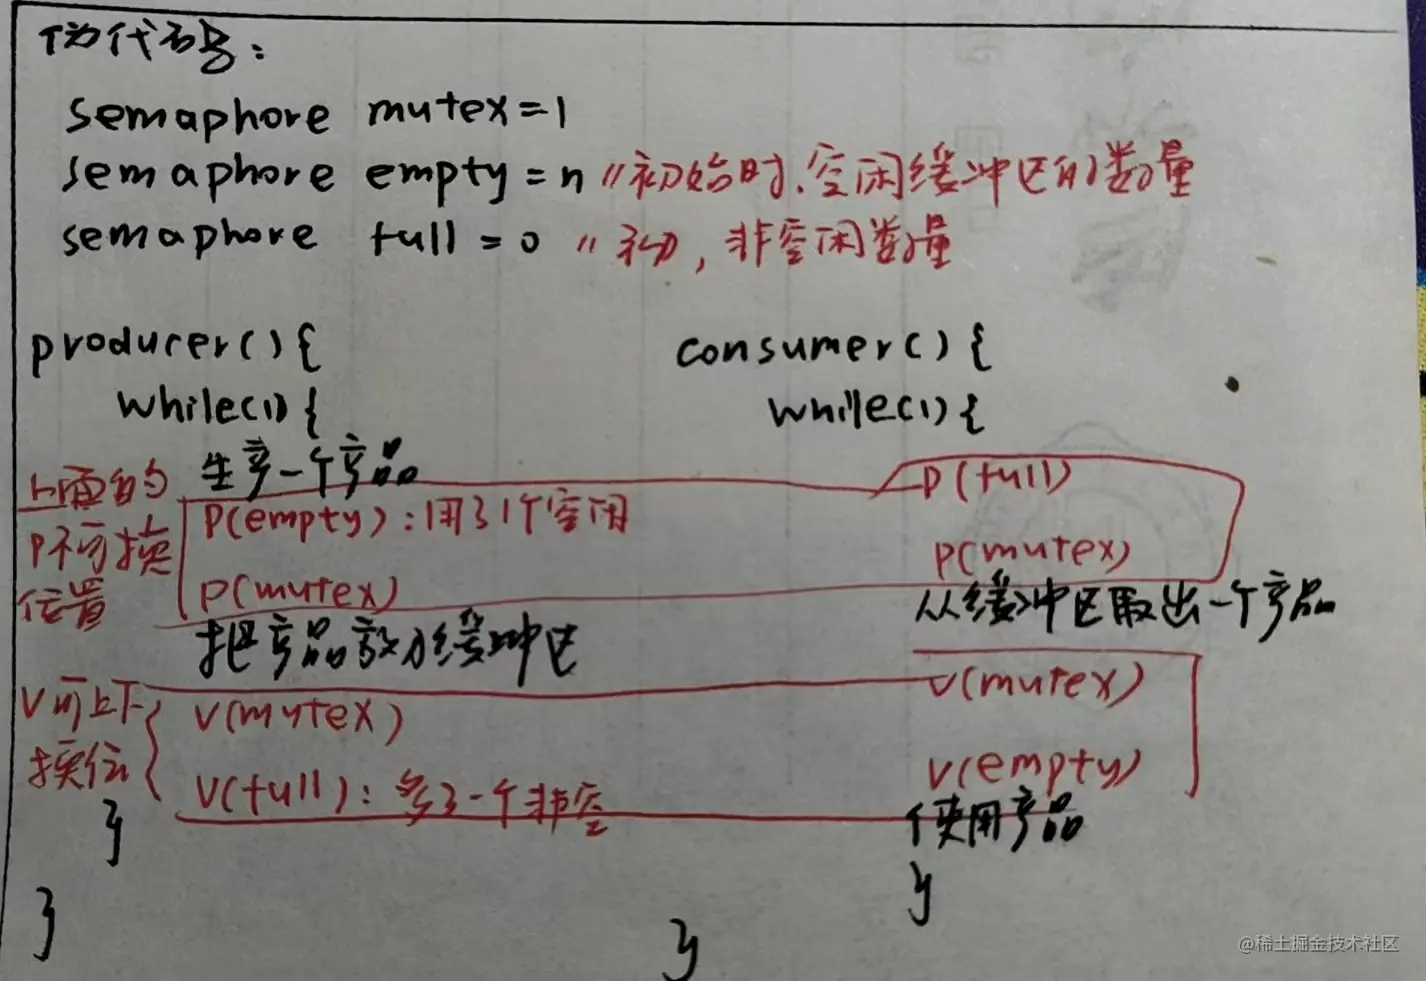 伪代码：
semaphore mutex=1
semaphore empty = n //初始时.空闲缓冲区的数量
semaphore full = 0 //初,非空闲数量
producer(){
while(1){
生产一个产品
P(empty)：用了1个空闲
P(mutex)
把产品放入缓冲区
V(mutex)
V(full)：多了一个非空
}
}
上面的
P不可换
位置
V可上下
换位
consumer(){
while(1){
P(full)
P(mutex)
从缓冲区取出一个产品
V(mutex)
V(empty)
使用产品
}
}
@稀土掘金技术社区